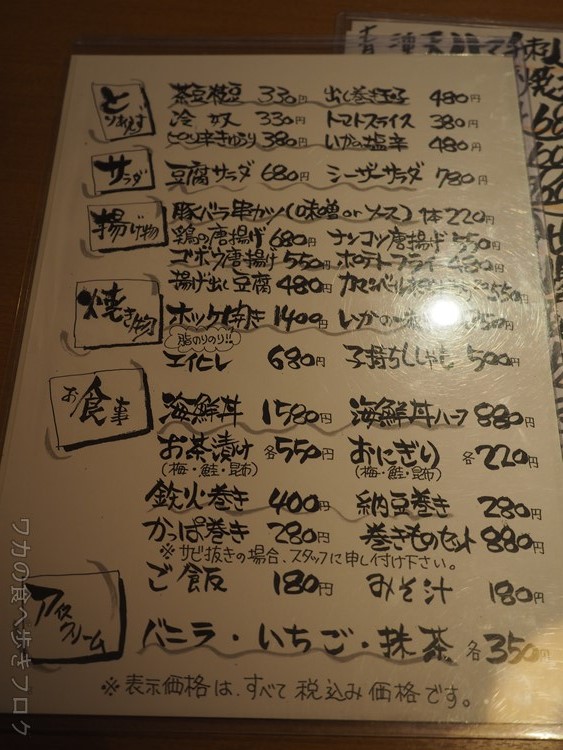 とりあえず
茶豆枝豆 330円 出し巻き玉子 480円
冷奴 330円 トマトスライス 380円
ピリ辛きゅうり 380円 いかの塩辛 480円
サラダ
豆腐サラダ 680円 シーザーサラダ 780円
揚げ物
豚バラ串カツ(味噌orソース) 1本220円
鶏の唐揚げ 680円 ナンコツ唐揚げ 550円
ゴボウ唐揚げ 550円 ポテトフライ 480円
揚げ出し豆腐 480円 カマンベール 550円
焼き物
ホッケ焼き 1400円 いかの一夜 850円
脂のりのり!!
エイヒレ 680円 子持ちししゃも 500円
お食事
海鮮丼 1580円 海鮮丼ハーフ 880円
お茶漬け 各550円 おにぎり 各220円
(梅・鮭・昆布) (梅・鮭・昆布)
鉄火巻き 400円 納豆巻き 280円
かっぱ巻き 280円 巻きものセット 880円
※サビ抜きの場合、スタッフに申し付け下さい。
ご飯 180円 みそ汁 180円
アイスクリーム
バニラ・いちご・抹茶 各350円
※表示価格は、すべて税込み価格です。
ワカの食べ歩きブログ